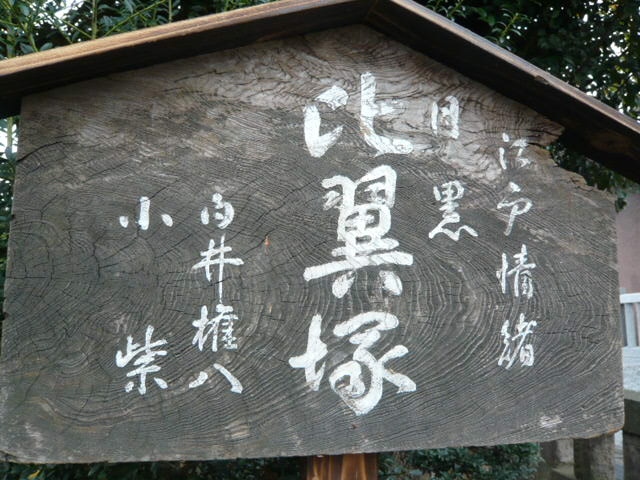 江戸情緒
目黒
比翼塚
白井権八
小柴